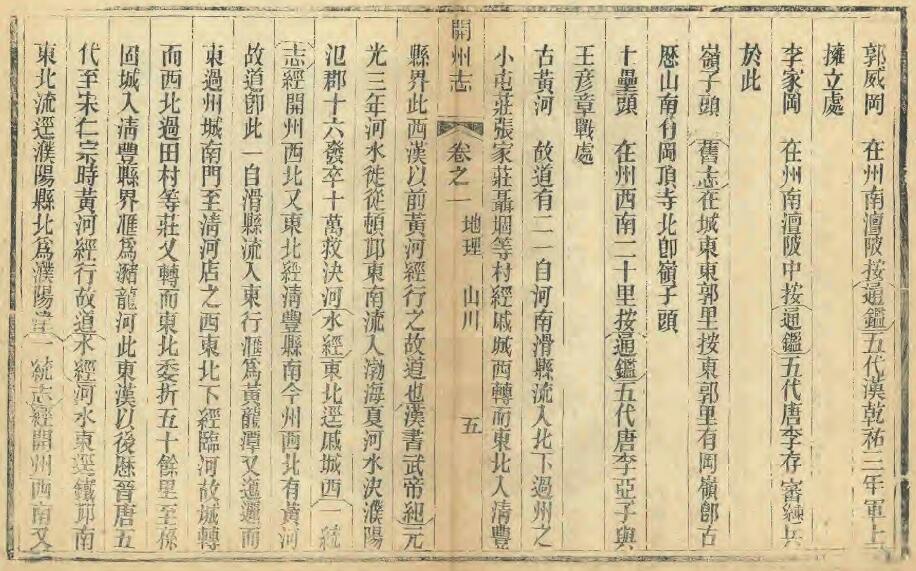 郭威岡　在州南澶陂按通鑑五代漢乾祐二年軍士
擁立處
李家岡　在州南澶陂中按通鑑五代唐李存審練兵
於此
嶺子頭　舊志在城東東郭里按東郭里有岡嶺卽古
歷山南有岡頂寺北卽嶺子頭
十壘頭　在州西南二十里按通鑑五代唐李亞子與
王彥章戰處
古黃河　故道有二一自河南滑縣流入北下過州之
小屯莊張家莊聶堌等村經戚城西轉而東北入清豐
縣界此西漢以前黃河經行之故道也漢書武帝紀元
光三年河水徙從頓邱東南流入渤海夏河水決濮陽
氾郡十六發卒十萬救決河水經東北逕戚城西一統
志經開州西北又東北經清豐縣南今州西北有黃河
故道卽此一自滑縣流入東行滙爲黃龍潭又迤邐而
東過州城南門至清河店之西東北下經臨河故城轉
而西北過田村等莊又轉而東北委折五十餘里至孫
固城入清豐縣界滙爲豬龍河此東漢以後歷晉唐五
代至宋仁宗時黃河經行故道水經河水東逕鐵邱南
東北流逕濮陽縣北爲濮陽津一統志經開州西南又
開州志　卷之一　地理　山川　五